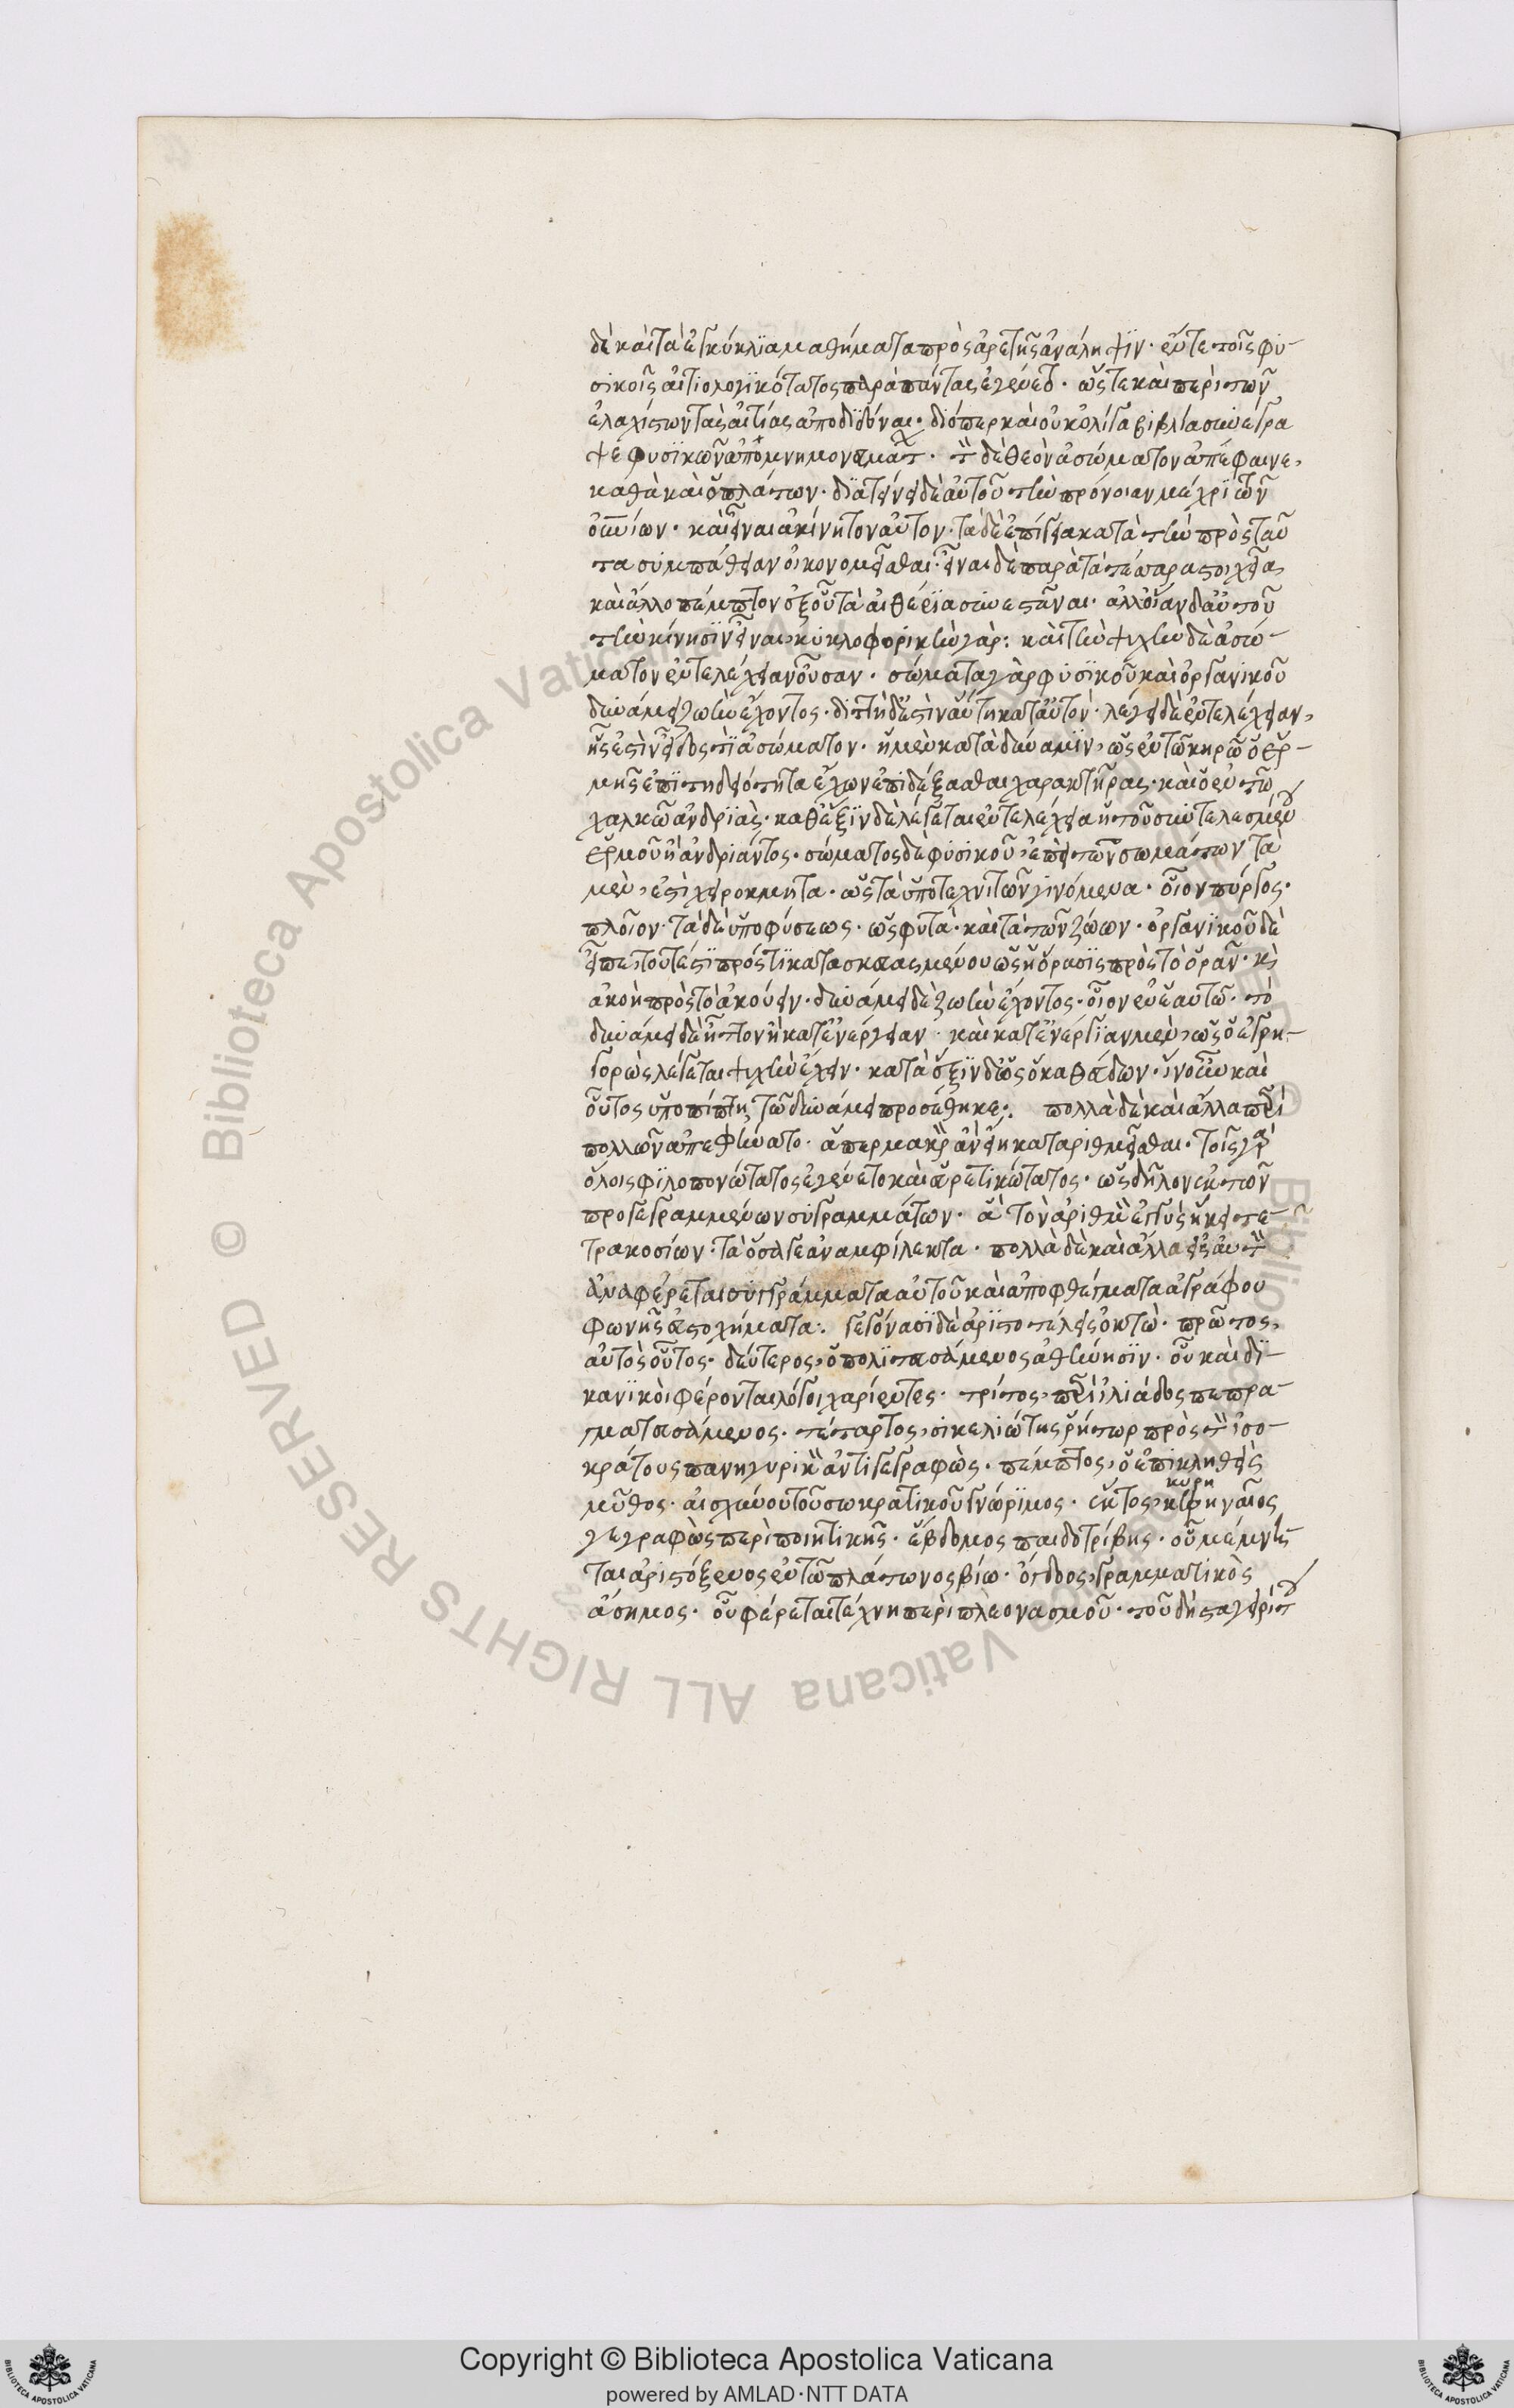 δὲ καὶ τὰ ἐγκύκλια μαθήματα πρὸς ἀρετῆς ἀνάληψιν· ἐν τε τοῖς φυ-
σικοῖς αἰτιολογικότατος παρὰ πάντας ἐγένετο· ὥστε καὶ περὶ τῶν
ἐλαχίστων τὰς αἰτίας ἀποδιδόναι· διόπερ καὶ οὐκ ὀλίγα βιβλία συνέγρα
ψε φυσικῶν ἀπομνημονευμάτων· τὸν δὲ θεὸν ἀσώματον ἀπέφαινε,
καθὰ καὶ ὁ πλάτων· διατείνει δὲ αὐτοῦ τὴν πρόνοιαν μέχρι τῶν
οὐνίων· καὶ εἶναι ἀκίνητον αὐτόν· τὰ δὲ ἐπίγεια κατὰ τὴν πρὸς ταῦ
τα συμπάθειαν οἰκονομεῖσθαι· εἶναι δὲ παρὰ τὰ τέσσαρα στοιχεῖα,
καὶ ἄλλο πέμπτον ἐξ οὗ τὰ αἰθέρια συνεστάναι· ἀλλοίαν δ' αὐτοῦ
τὴν κίνησιν εἶναι, κυκλοφορικὴν γάρ: καὶ τὴν ψυχὴν δὲ ἀσώ-
ματον ἐντελέχειαν οὖσαν· σώματα γὰρ φυσικοῦ καὶ ὀργανικοῦ
δυνάμει ζωὴν ἔχοντος· διττὴ δ' ἐστὶν αὕτη κατ' αὐτόν· λέγει δὲ ἐντελέχειαν,
ἧς ἐστὶν εἶδός τι ἀσώματον· ἡ μὲν κατὰ δύναμιν, ὡς ἐν τῷ κηρῷ ὁ ἑρ-
μῆς ἐπιτηδειότητα ἔχων ἐπιδέξασθαι χαρακτῆρας· καὶ ὁ ἐν τῷ
χαλκῷ ἀνδριάς· καθ' ἕξιν δὲ λέγεται ἐντελέχεια ἡ τοῦ συντελεσμένου
ἑρμοῦ ἢ ἀνδριάντος· σώματος δὲ φυσικοῦ, ἐπεὶ τῶν σωμάτων τὰ
μέν, ἐστὶ χειροκμητα· ὡς τὰ ὑπὸ τεχνιτῶν γινόμενα· οἷον πύργος·
πλοῖον· τὰ δὲ ὑπὸ φύσεως· ὡς φυτά· καὶ τὰ τῶν ζώων· ὀργανικοῦ δὲ
εἶπε, τουτέστι πρός τι κατασκευασμένου ὡς ἡ ὅρασις πρὸς τὸ ὁρᾶν· κὶ
ἀκοὴ πρὸς τὸ ἀκούειν· δυνάμει δὲ ζωὴν ἔχοντος· οἷον ἐν ἑαυτῷ· τὸ
δυνάμει δὲ ἢ τὸν ἢ κατ' ἐνέργειαν· καὶ κατ' ἐνέργιαν μέν, ὡς ὁ ἐγρη-
γορὼς λέγεται ψυχὴν ἔχειν· κατὰ ἕξιν δ' ὡς ὁ καθεύδων· ἵν' οὖν καὶ
οὗτος ὑποπίπτῃ, τῷ δυνάμει προσέθηκε:. πολλὰ δὲ καὶ ἄλλα περὶ
πολλῶν ἀπεφήνατο· ἅπερ μακρὸν ἂν εἴη καταριθμεῖσθαι· τοῖς γὰρ
ὅλοις φιλοπονώτατος ἐγένετο καὶ εὑρετικώτατος· ὡς δῆλον ἐκ τῶν
προγεγραμμένων συγραμμάτων· ἃ τὸν ἀριθμὸν ἐγγὺς ἥκει τε-
τρακοσίων· τὰ ὅσα γε ἀναμφίλεκτα· πολλὰ δὲ καὶ ἄλλα εἰς αὐτὸν
ἀναφέρεται συγγράμματα αὐτοῦ καὶ ἀποφθέγματα ἀγράφου
φωνῆς εὐστοχήματα:. γεγόνασι δὲ ἀριστοτέλεις ὀκτώ· πρῶτος,
αὐτὸς οὗτος· δεύτερος, ὁ πολιτευσάμενος ἀθήνησιν· οὗ καὶ δι-
κανικοὶ φέρονται λόγοι χαρίεντες· τρίτος, περὶ ἰλιάδος πεπρα-
γματευσάμενος· τέταρτος, σικελιώτης ῥήτωρ πρὸς τὸν ἰσο-
κράτους πανηγυρικὸν ἀντιγεγραφώς· πέμπτος, ὁ ἐπικληθεὶς
μῦθος· αἰσχίνου τοῦ σωκρατικοῦ γνώριμος· ἕκτος, κυρηναῖος
γεγραφὼς περὶ ποιητικῆς· ἕβδομος παιδοτρίβης· οὗ μέμνη-
ται ἀριστόξενος ἐν τῷ πλάτωνος βίῳ· ὄγδοος, γραμματικὸς
ἄσημος· οὗ φέρεται τέχνη περὶ πλεονασμοῦ· τοῦ δὴ σταγειρίτου